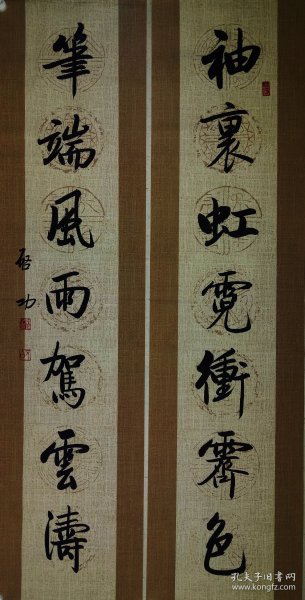 袖裏虹霓衝霽色
筆端風雨駕雲濤
啓功
孔夫子旧书网